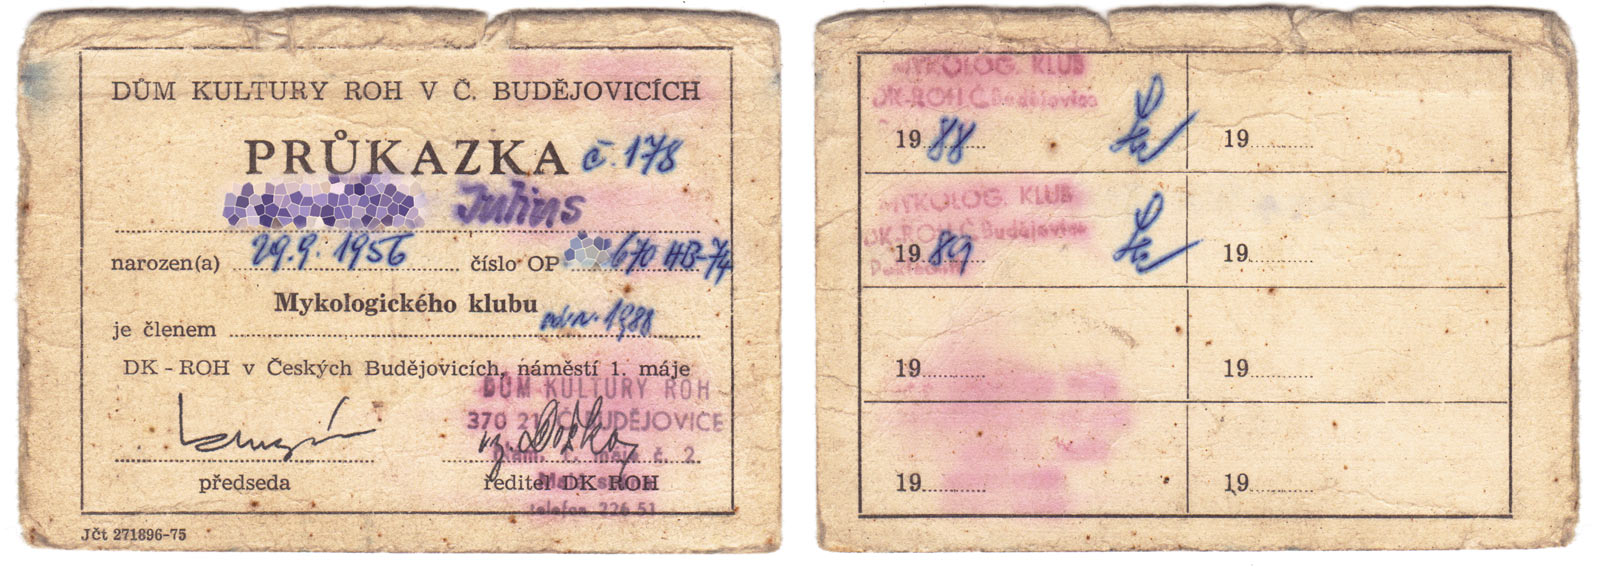 DŮM KULTURY ROH V Č. BUDĚJOVICÍCH
PRŮKAZKA č. 178
Julius
narozen(a) 29.9.1956 číslo OP 670 HB-74
Mykologického klubu
je členem od r. 1988
DK - ROH v Českých Budějovicích, náměstí 1. máje
DŮM KULTURY ROH
370 21 Č. BUDĚJOVICE
nám. 1. máje č. 2
telefon 226 51
předseda
ředitel DK ROH
Jčt 271896-75
MYKOLOG. KLUB
DK-ROH Č Budějovice
19 88
19
MYKOLOG. KLUB
DK-ROH Č Budějovice
19 89
19
19
19
19
19